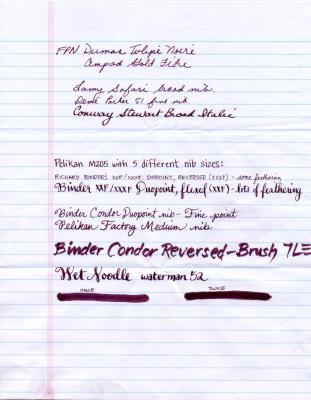 FPN Dumas Tulipe Noire
Ampad Gold Fibre
Lamy Safari broad nib
Demi Parker 51 fine nib
Conway Stewart Broad Italic
Pelikan M205 with 5 different nib sizes:
RICHARD BINDERS XXF/XXXF DUOPOINT, REVERSED (XXXF) - some feathering
Binder XXF/XXXF Duopoint, flexed (XXF) - lots of feathering
Binder Condor Duopoint nib - Fine point
Pelikan Factory Medium nib
Binder Condor Reversed - Brush
Wet Noodle waterman 52
ONCE TWICE